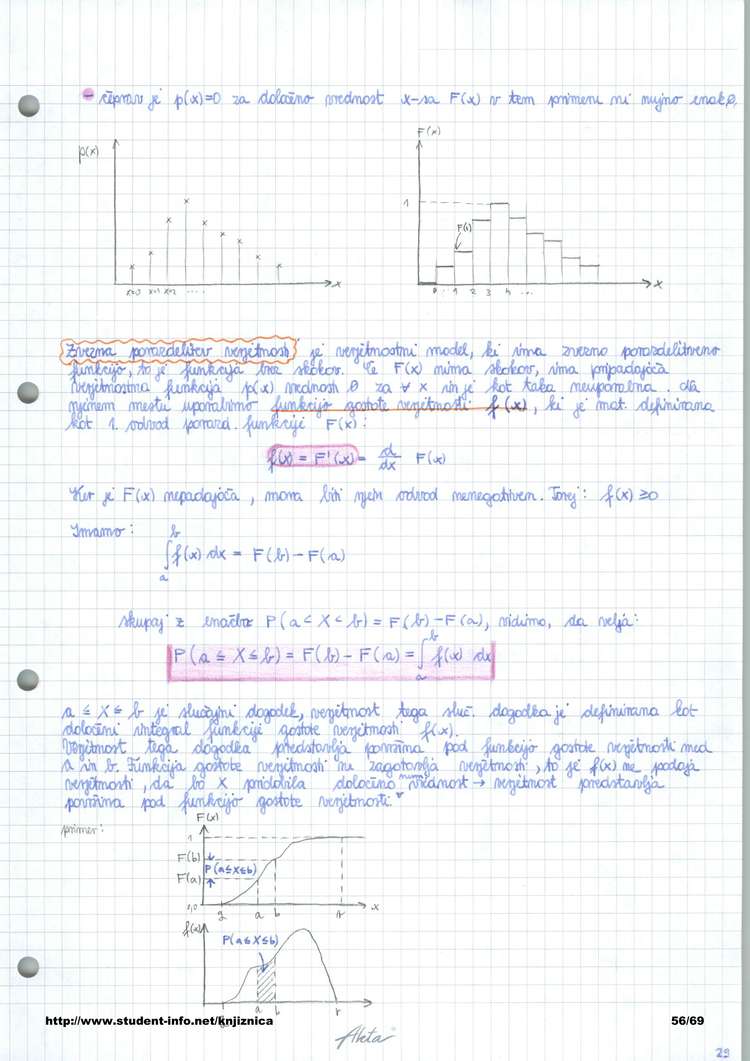 - čeprav je p(x)=0 za določeno vrednost x-sa F(x) v tem primeru ni nujno enak 0.
p(x)
x=0 x=1 x=2 ....
x
F(x)
1
F(1)
0 . 1 2 3 4 ...
x
Zvezna porazdelitev verjetnosti je verjetnostni model, ki ima zvezno porazdelitveno
funkcijo, to je funkcija brez skokov. Če F(x) nima skokov, ima pripadajoča
verjetnostna funkcija p(x) vrednost 0 za ∀ x in je kot taka neuporabna. Na
njenem mestu uporabimo funkcijo gostote verjetnosti f(x), ki je mat. definirana
kot 1. odvod porazd. funkcije F(x):
f(x) = F'(x) = d/dx F(x)
Ker je F(x) nepadajoča, mora biti njen odvod nenegativen. Torej: f(x) ≥ 0
Imamo:
∫_a^b f(x) dx = F(b) - F(a)
skupaj z enačbo P(a < X < b) = F(b) - F(a), vidimo, da velja:
P(a ≤ X ≤ b) = F(b) - F(a) = ∫_a^b f(x) dx
a ≤ X ≤ b je slučajni dogodek, verjetnost tega sluč. dogodka je definirana kot
določeni integral funkcije gostote verjetnosti f(x).
Verjetnost tega dogodka predstavlja površina pod funkcijo gostote verjetnosti med
a in b. Funkcija gostote verjetnosti ne zagotavlja verjetnosti, to je f(x) ne podaja
verjetnosti, da bo X pridobila določeno vrednost → verjetnost predstavlja
površina pod funkcijo gostote verjetnosti.
primer:
F(x)
1
F(b)
P(a≤X≤b)
F(a)
0,0
a b
x
f(x)
P(a≤X≤b)
a b
http://www.student-info.net/knjiznica
56/69
29